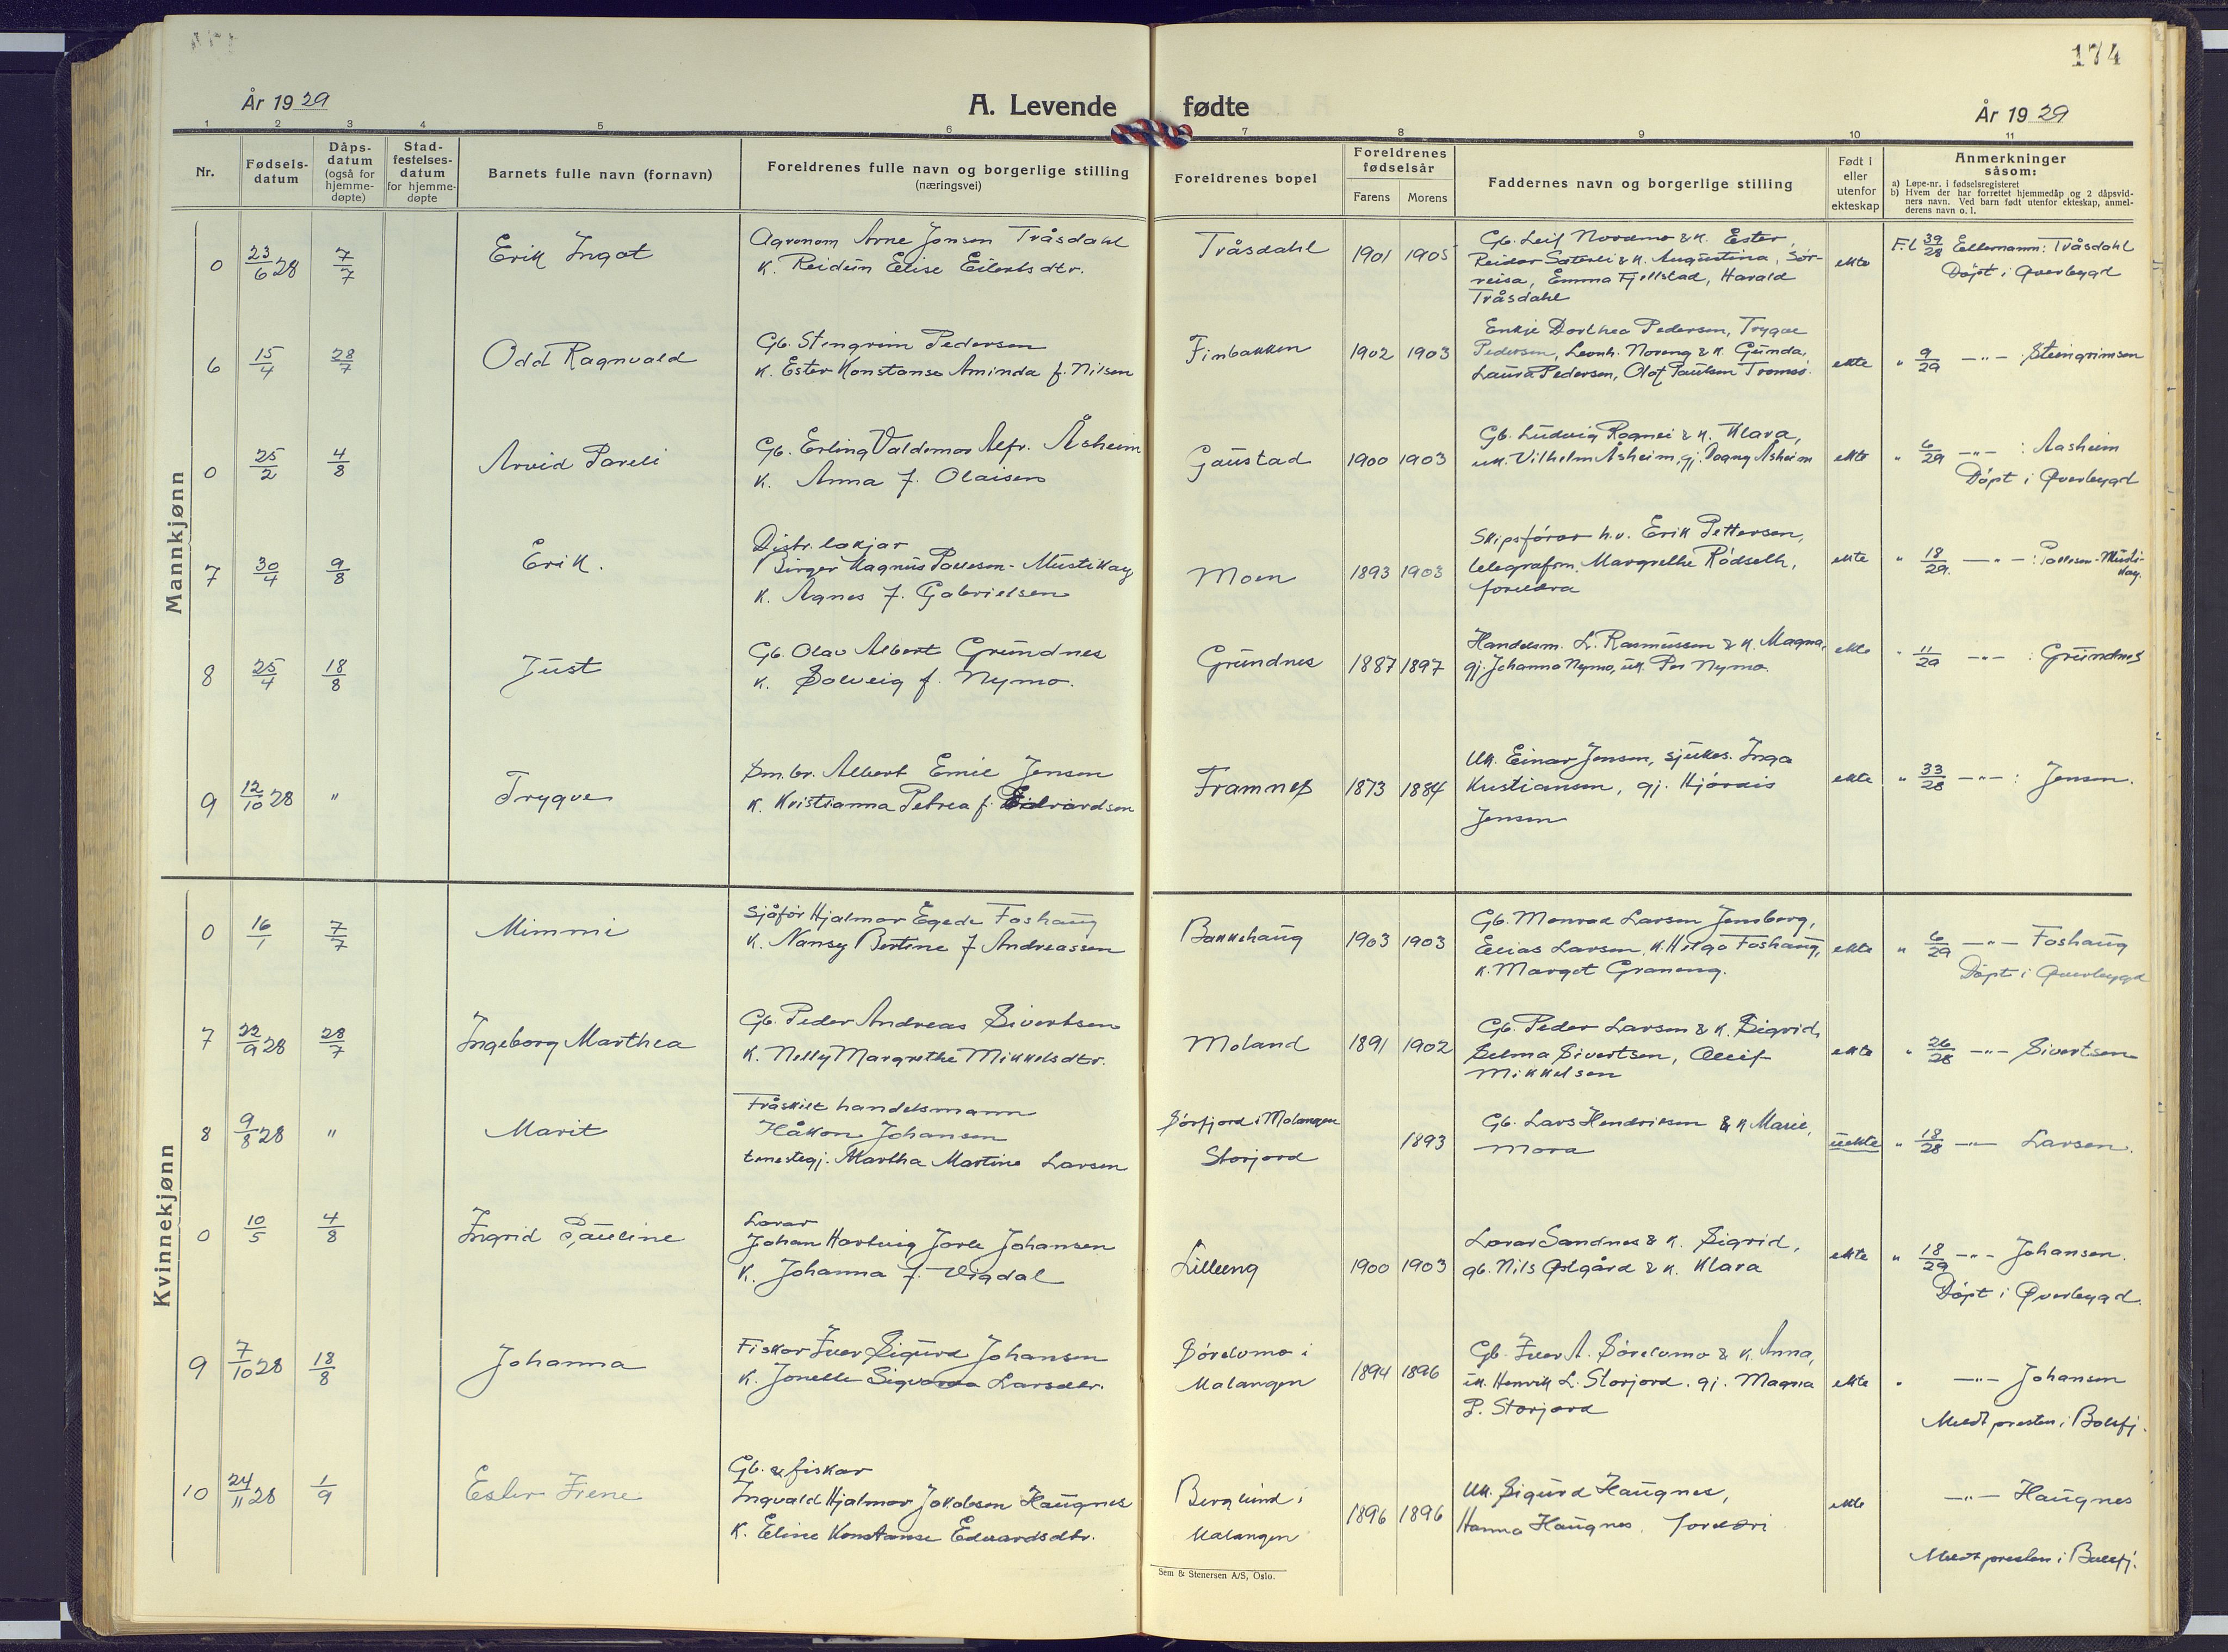 174
År 1929
A. Levende fødte
År 1929
1 2 3 4 5 6 7 8 9 10 11
Nr.
Fødsels-
datum
Dåps-
datum
(også for
hjemme-
døpte)
Stad-
festelses-
datum
for hjemme-
døpte
Barnets fulle navn (fornavn)
Foreldrenes fulle navn og borgerlige stilling
(næringsvei)
Foreldrenes bopel
Foreldrenes
fødselsår
Farens Morens
Faddernes navn og borgerlige stilling
Født i
eller
utenfor
ekteskap
Anmerkninger
såsom:
a) Løpe-nr. i fødselsregisteret
b) Hvem der har forrettet hjemmedåp og 2 dåpsvid-
ners navn. Ved barn født utenfor ekteskap, anmel-
derens navn o. l.
Mannkjønn
0 23/6 28 7/7 Erik Ingot
Agronom Arne Jonson Tråsdahl
K. Reidun Elise Eilertsdtr.
Tråsdahl 1901 1905
Gb. Leif Nordmo & K. Ester,
Reidar Sæterli & K. Augustina, Sør-
reisa, Emma Fjellstad, Harald
Tråsdahl
ekte
F.l. 39/28 Ettermann: Tråsdahl
Døpt i Øverbygd
6 15/4 28/7 Odd Ragnvald
Gb. Stengrim Pedersen
K. Ester Konstanse Aminda f. Nilsen
Finbakken 1902 1903
Enkje Dorthea Pedersen, Trygve
Pedersen, Leonh. Noreng & K. Gunda,
Laura Pedersen, Olof Paulsen Tromsø.
ekte
" 9/29 -"- Steingrimsen
0 25/2 4/8 Arvid Pareli
Gb. Erling Valdemar Alfr. Åsheim
K. Anna f. Olaisen
Gaustad 1900 1903
Gb. Ludvig Rognei & K. Klara,
uk. Vilhelm Åsheim, gj. Dagny Åsheim
ekte
" 6/29 -"- : Aasheim
Døpt i Øverbygd
7 30/4 9/8 Erik.
Distr. lækjar
Birger Magnus Pallesen-Mustikay
K. Agnes f. Gabrielsen
Moen 1893 1903
Skipsførar h.v. Erik Pettersen,
telegrafm. Margrethe Rødseth,
foreldra
ekte
" 18/29. -"- : Pallesen-Musti-
kay.
8 25/4 18/8 Just
Gb. Olav Albert Grundnes
K. Solveig f. Nymo.
Grundnes 1887 1897
Handelsm. L. Rasmussen & K. Magna,
gj. Johanna Nymo, uk. Per Nymo.
ekte
" 11/29 -"- : Grundnes
9 12/10 28 " Trygve
Sm.br. Albert Emil Jensen
K. Kristianna Petrea f. Edvardsen
Framnes 1873 1884
Uk. Einar Jensen, sjukes. Inga
Kristiansen, gj. Hjørdis
Jensen
ekte
" 33/28 -"- : Jensen.
Kvinnekjønn
0 16/1 7/7 Mimmi
Sjåfør Hjalmar Egede Foshaug
K. Nansy Bertine f Andreassen
Bakkehaug 1903 1903
Gb. Monrad Larsen Jensberg,
Elias Larsen, K. Helga Foshaug,
K. Margot Graneng.
ekte
" 6/29 -"- Foshaug
Døpt i Øverbygd
7 22/9 28 28/7 Ingeborg Marthea
Gb. Peder Andreas Sivertsen
K. Nelly Margrethe Mikkelsdtr.
Moland 1891 1902
Gb. Peder Larsen & K. Sigrid,
Selma Sivertsen, Olleif
Mikkelsen
ekte
" 26/28 -"- Sivertsen
8 9/8 28 " Marit
Fråskilt handelsmann
Håkon Johansen
tenestegj. Martha Martine Larsen
Sørfjord i Malangen
Storjord
1893
Gb. Lars Hendriksen & K Marie,
Mora
uekte
" 18/28 -"- Larsen.
0 10/5 4/8 Ingrid Pauline
Lærar
Johan Hartvig Jarle Johansen
K. Johanna f. Vigdal
Lilleeng 1900 1903
Lærar Sandnes & K. Sigrid,
gb. Nils Østgård & K. Klara
ekte
" 18/29 -"- Johansen.
Døpt i Øverbygd.
9 7/10 28 18/8 Johanna
Fiskar Iver Sigurd Johansen
K. Jonette Sigvarda Larsdtr.
Sørelvmo i
Malangen
1894 1896
Gb. Iver A. Sørelvmo & K. Anna,
uk. Henrik L. Storjord. gj. Magna
P. Storjord
ekte
" -"- Johansen
Meldt presten i Balsfj.
10 24/11 28 1/9 Ester Irene
Gb. & fiskar
Ingvald Hjalmar Jakobsen Haugnes
K. Eline Konstanse Edvardsdtr.
Berglund i
Malangen
1896 1896
Uk. Sigurd Haugnes,
Hanna Haugnes. Foreldri
ekte
-"- Haugnes
Meldt presten i Balsfj.
Sem & Stenersen A/S, Oslo.